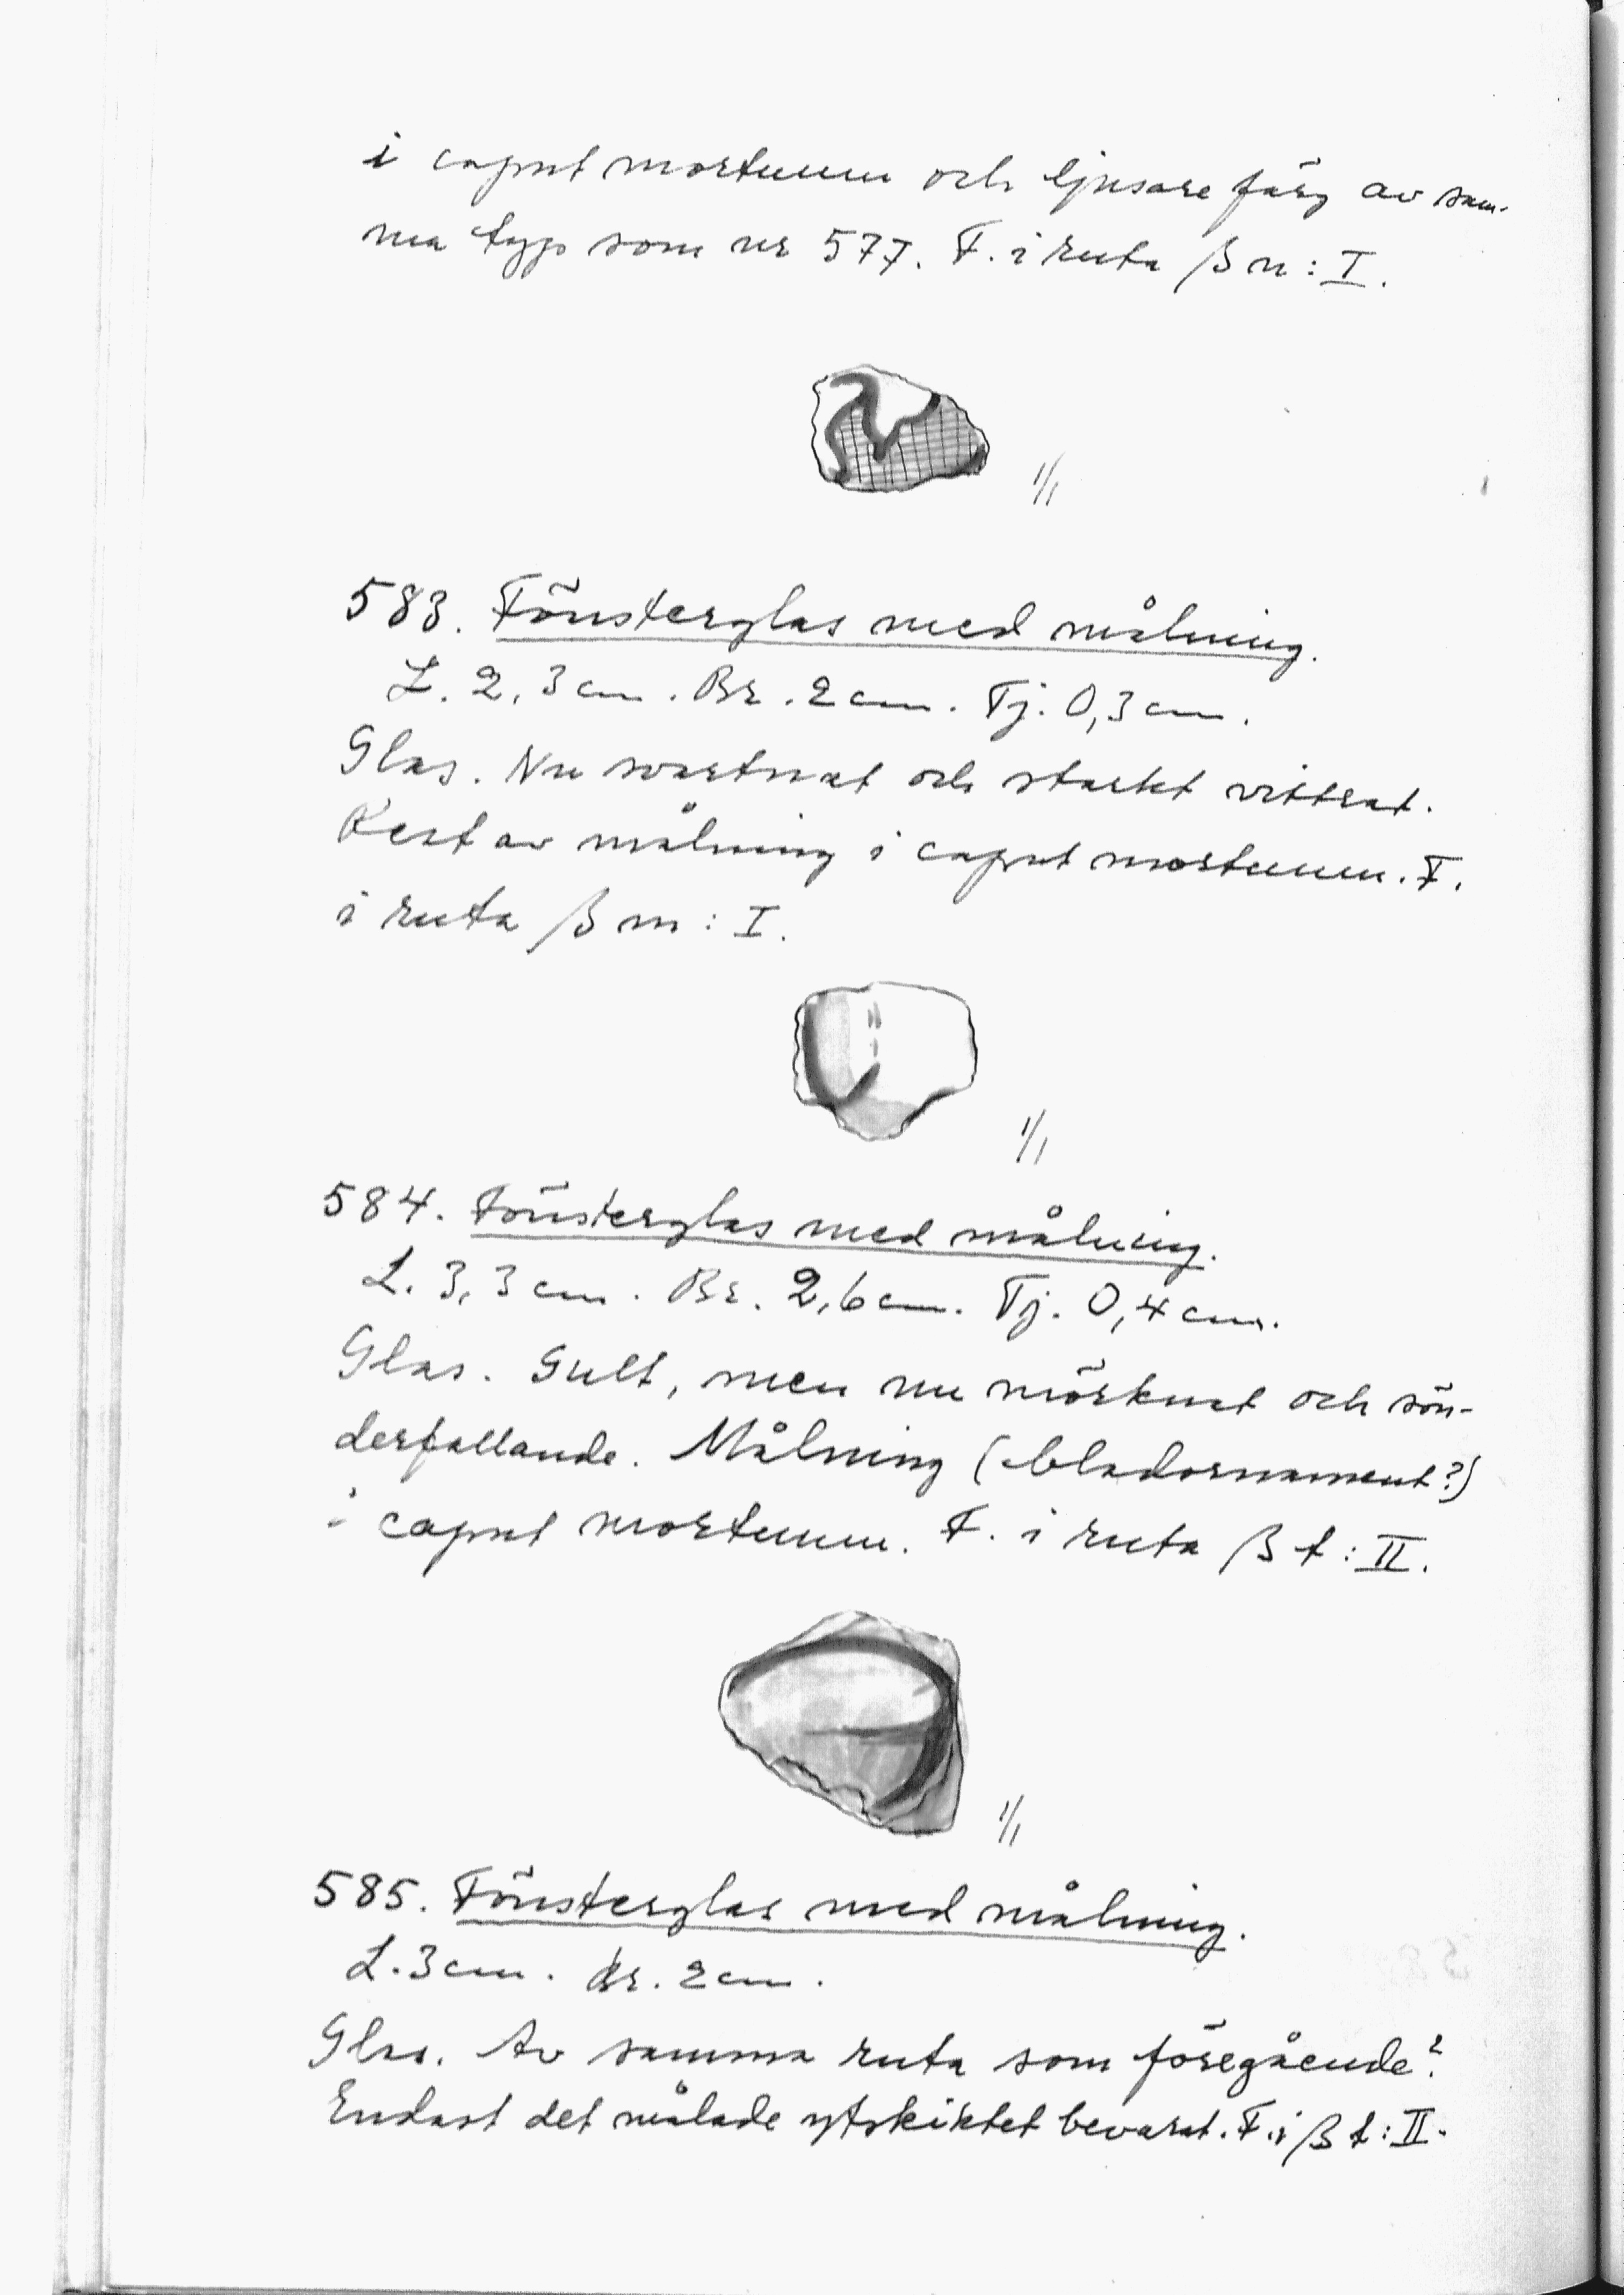 i caput mortuum och ljusare färg av sam-
ma typ som nr 577. F. i ruta β n : I.
1/1
583. Fönsterglas med målning.
L. 2,3 cm. Br. 2 cm. Tj. 0,3 cm.
Glas. Nu svartnat och starkt vittrat.
Rest av målning i caput mortuum. F.
i ruta β m : I.
1/1
584. Fönsterglas med målning.
L. 3,3 cm. Br. 2,6 cm. Tj. 0,4 cm.
Glas. Gult, men nu mörknat och sön-
derfallande. Målning (bladornament?)
i caput mortuum. F. i ruta β t : II.
1/1
585. Fönsterglas med målning.
L. 3 cm. Br. 2 cm.
Glas. Av samma ruta som föregående?
Endast det målade ytskiktet bevarat. F. i β t : II.